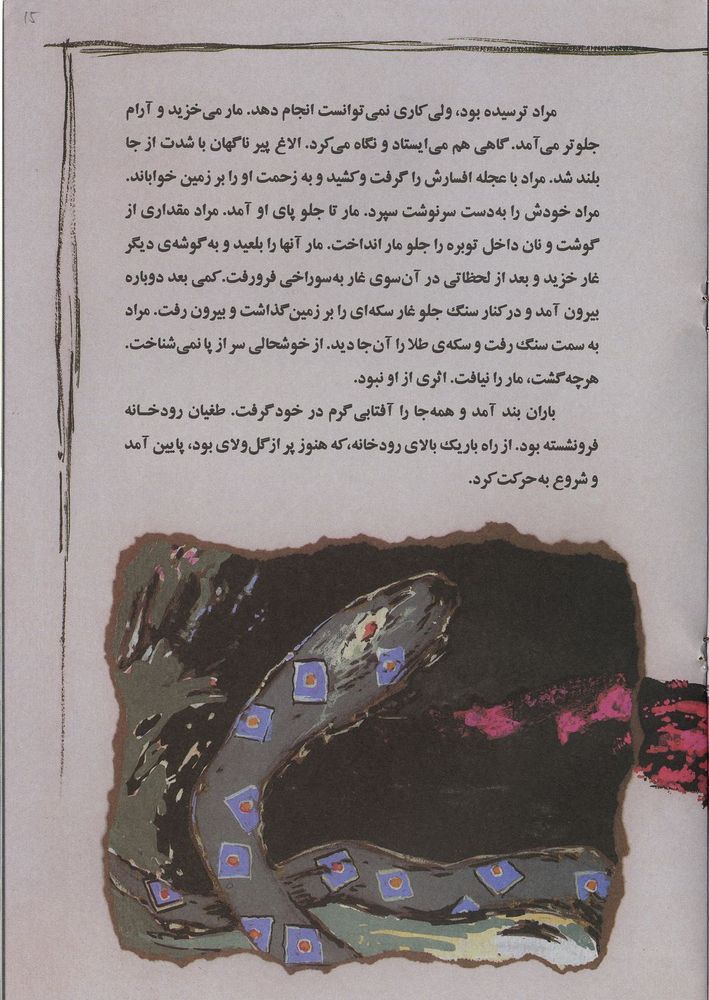 15
مراد ترسیده بود، ولی کاری نمی‌توانست انجام دهد. مار می‌خزید و آرام
جلوتر می‌آمد. گاهی هم می‌ایستاد و نگاه می‌کرد. الاغ پیر ناگهان با شدت از جا
بلند شد. مراد با عجله افسارش را گرفت و کشید و به زحمت او را بر زمین خواباند.
مراد خودش را به‌دست سرنوشت سپرد. مار تا جلو پای او آمد. مراد مقداری از
گوشت و نان داخل توبره را جلو مار انداخت. مار آنها را بلعید و به گوشه‌ی دیگر
غار خزید و بعد از لحظاتی در آن‌سوی غار به‌سوراخی فرورفت. کمی بعد دوباره
بیرون آمد و در کنار سنگ جلو غار سکه‌ای را بر زمین گذاشت و بیرون رفت. مراد
به سمت سنگ رفت و سکه‌ی طلا را آن‌جا دید. از خوشحالی سر از پا نمی‌شناخت.
هرچه گشت، مار را نیافت. اثری از او نبود.
باران بند آمد و همه‌جا را آفتابی گرم در خود گرفت. طغیان رودخـانه
فرونشسته بود. از راه باریک بالای رودخانه، که هنوز پر از گل‌ولای بود، پایین آمد
و شروع به‌حرکت کرد.